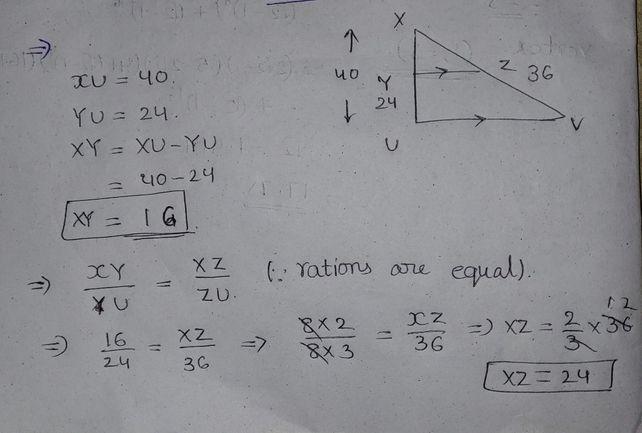 ⇒
XU = 40.
YU = 24.
XY = XU - YU
= 40 - 24
XY = 16
X
40
Y
24
U
Z
36
V
⇒ XY/YU = XZ/ZU. (∵ rations are equal).
⇒ 16/24 = XZ/36 ⇒ 8×2/8×3 = XZ/36 ⇒ XZ = 2/3 × 36 12
XZ = 24